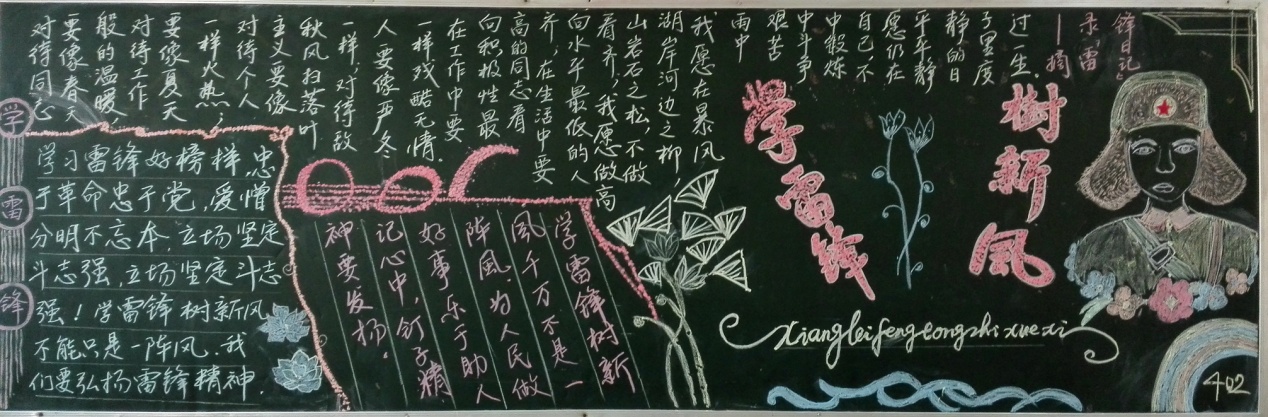 对待同志
要像春天
般的温暖
对待工作
要像夏天
一样火热;
对待个人
主义要像
秋风扫落叶
一样,对待敌
人要像严冬
一样残酷无情.
在工作中要
向积极性最
高的同志看
齐,在生活中要
向水平最低的人
看齐,我愿做高
山岩石之松,不做
湖岸河边之柳,
我愿在暴风
雨中
艰苦
中斗争
中锻炼
自己,不
愿仍在
平平静
静的日
子里度
过一生.
——摘
录雷
锋日记》
學雷锋
樹新風
学
雷
锋
学习雷锋好榜样,忠
于革命忠于党,爱憎
分明不忘本,立场坚定
斗志强,立场坚定斗志
强!学雷锋树新风
不能只是一阵风.我
们要弘扬雷锋精神.
学雷锋树新
風千万不是一
阵風.为人民做
好事乐于助人
记心中,钉子精
神要发扬.
xiangleifengtongzhi xuexi
402